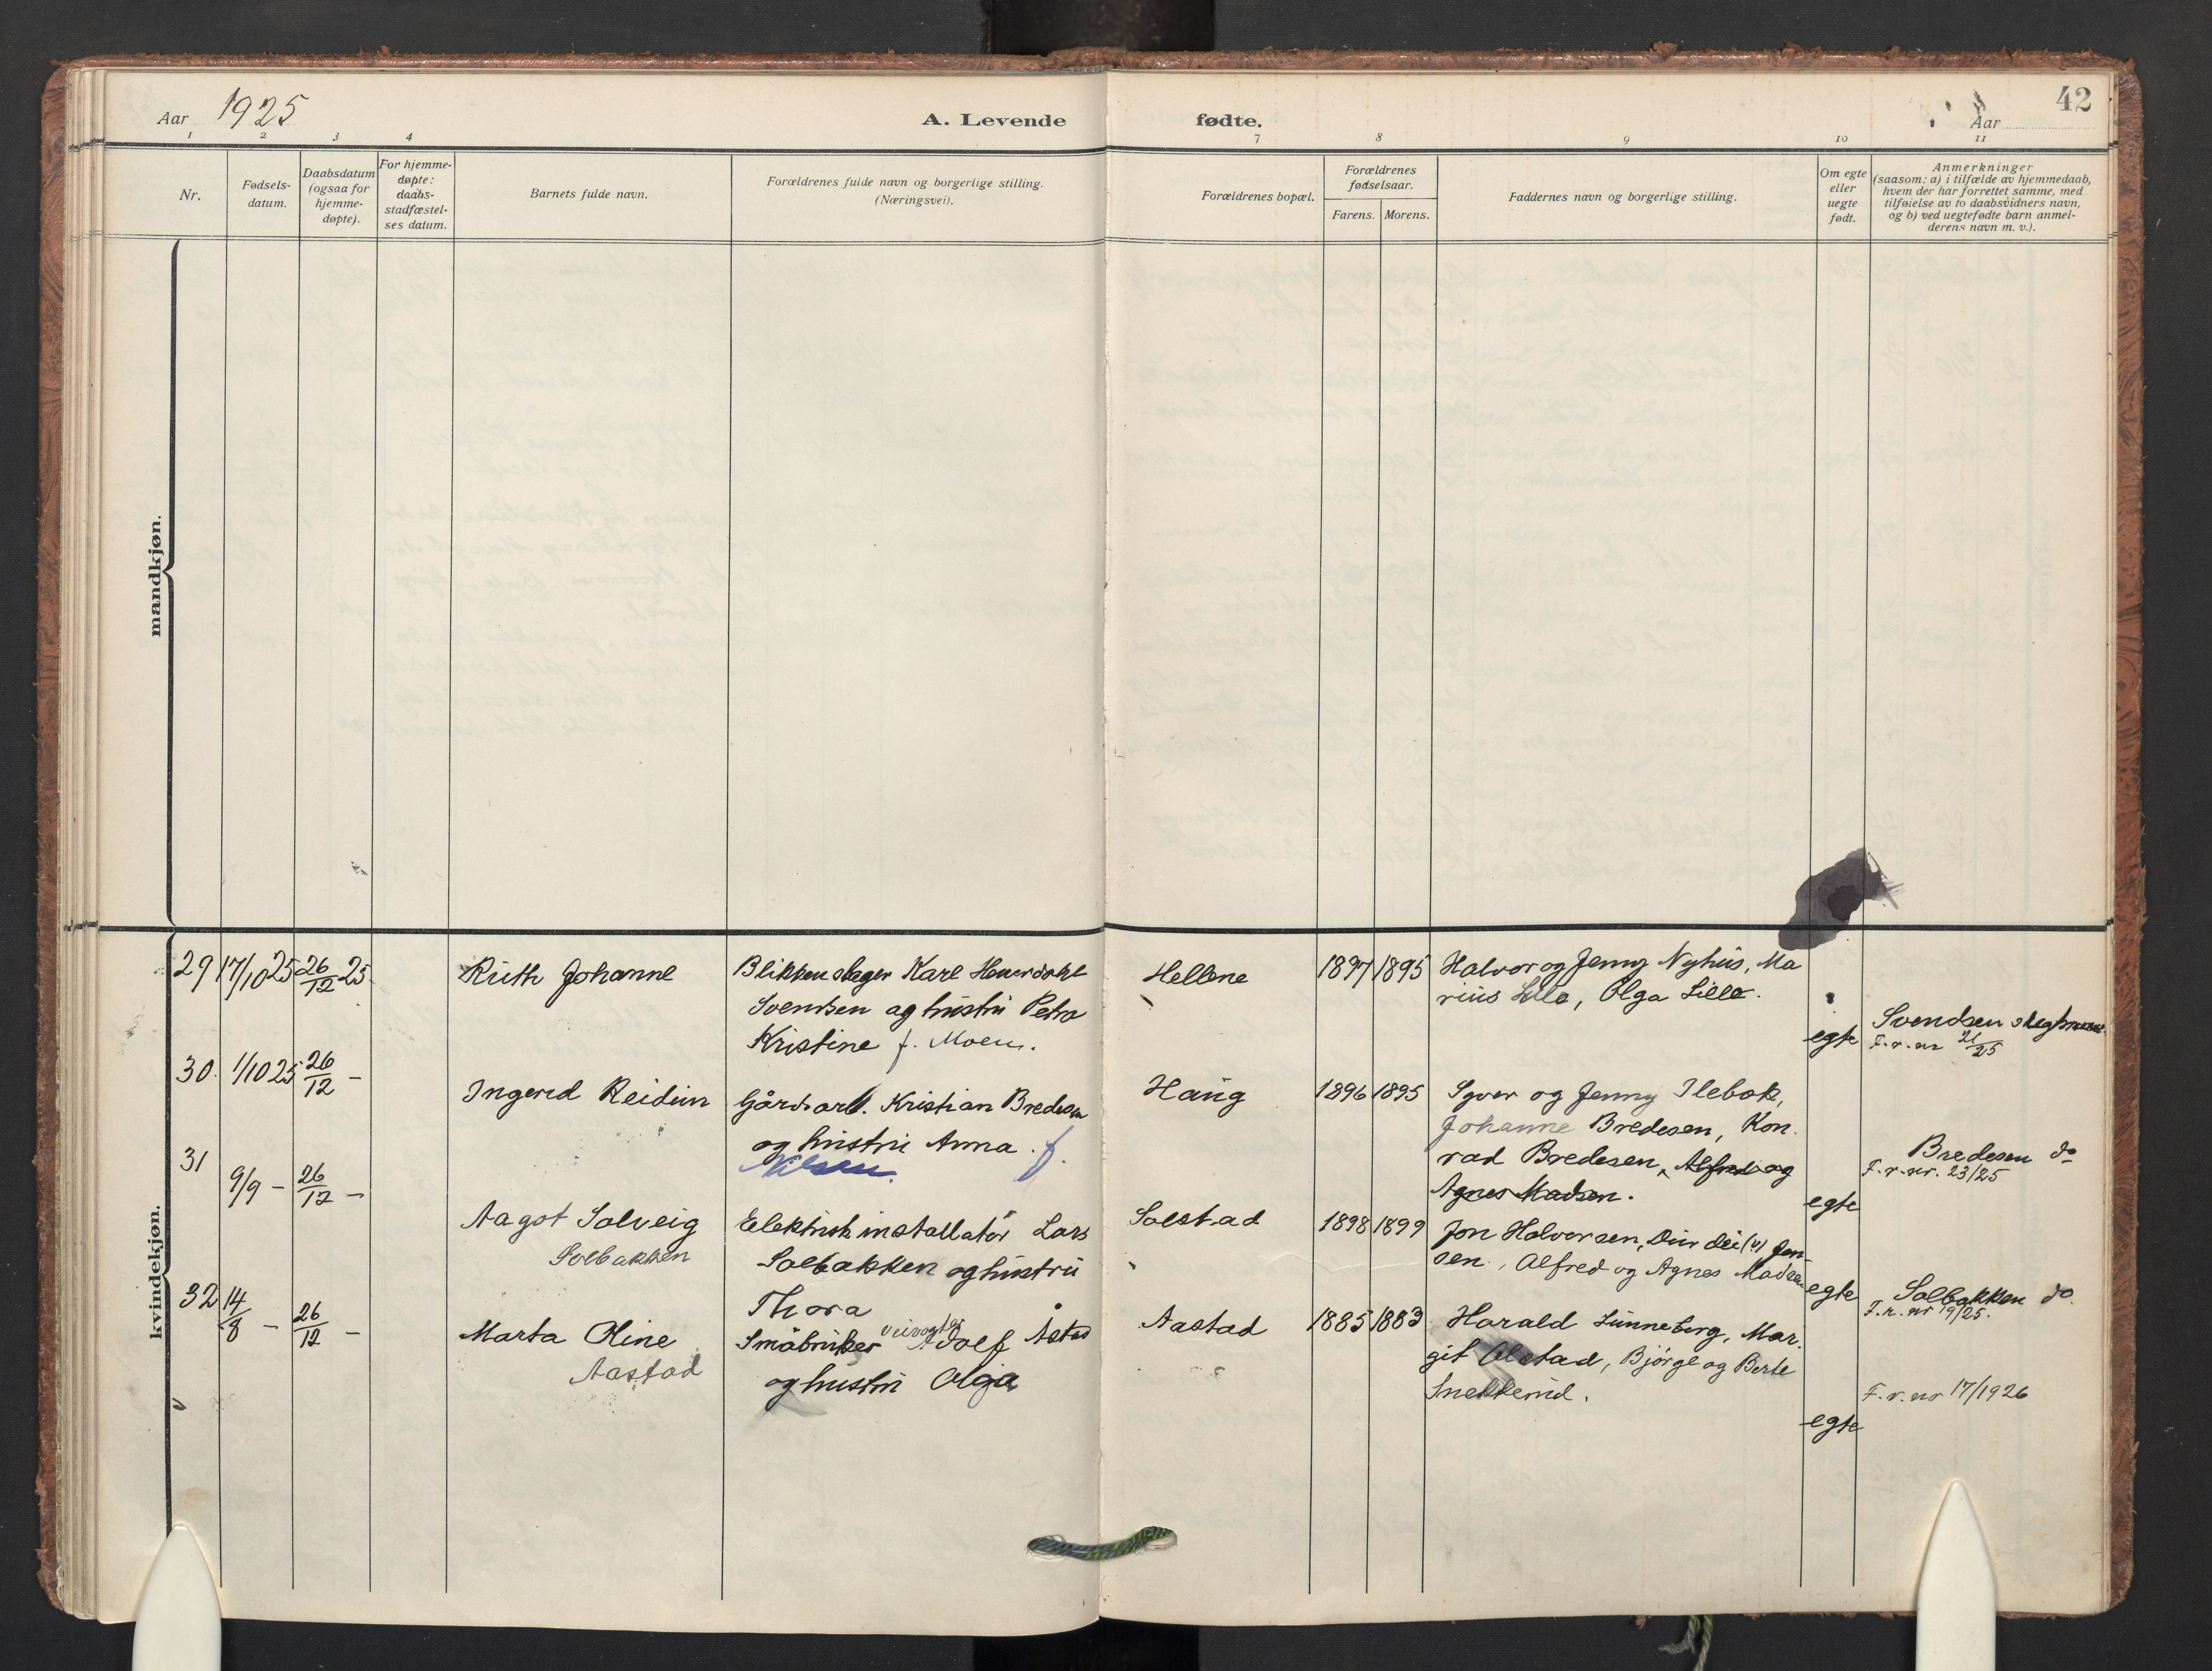 Aar 1925
A. Levende fødte.
42
Aar
1 2 3 4 7 8 9 10 11
Nr.
Fødsels-
datum.
Daabsdatum
(ogsaa for
hjemme-
døpte).
For hjemme-
døpte:
daabs-
stadfæstel-
ses datum.
Barnets fulde navn.
Forældrenes fulde navn og borgerlige stilling.
(Næringsvei).
Forældrenes bopæl.
Forældrenes
fødselsaar.
Farens. Morens.
Faddernes navn og borgerlige stilling.
Om egte
eller
uegte
født.
Anmerkninger
(saasom: a) i tilfælde av hjemmedaab,
hvem der har forrettet samme, med
tilføielse av to daabsvidners navn,
og b) ved uegtefødte barn anmel-
derens navn m. v.).
mandkjøn.
kvindekjøn.
29 17/10 25 26/12 25
Ruth Johanne
Blikkenslager Karl
Svendsen og hustru Petra
Kristine f. Moen.
Hellene
1897 1895
Halvor og Jenny Nyhus, Ma
rius Lille, Olga Lille.
egte
Svendsen
F. r. nr 21/25
30. 1/10 25 26/12 –
Ingerd Reidun
Gårdsarb. Kristian Bredesen
og hustru Anna f.
Nilsen.
Haug
1896 1895
Syver og Jenny Ilebek,
Johanne Bredesen, Kon.
rad Bredesen, Alfred og
Agnes Madsen.
egte
Bredesen do
F. r. nr. 23/25
31 9/9 – 26/12 –
Aagot Solveig
Solbakken
Elektrisk installatør Lars
Solbakken og hustru
Thora
Solstad
1898 1899
Jon Halvorsen, Jen-
sen, Alfred og Agnes Madsen
egte
Solbakken do.
F. r. nr 19/25.
32 14/8 – 26/12 –
Marta Oline
Aastad
Småbruker veivogter Adolf Åstad
og hustru Olga
Aastad
1885 1883
Harald Lunneborg, Mar.
git Olstad, Bjørge og Berte
Snekkerud.
egte
F. r. nr 17/1926